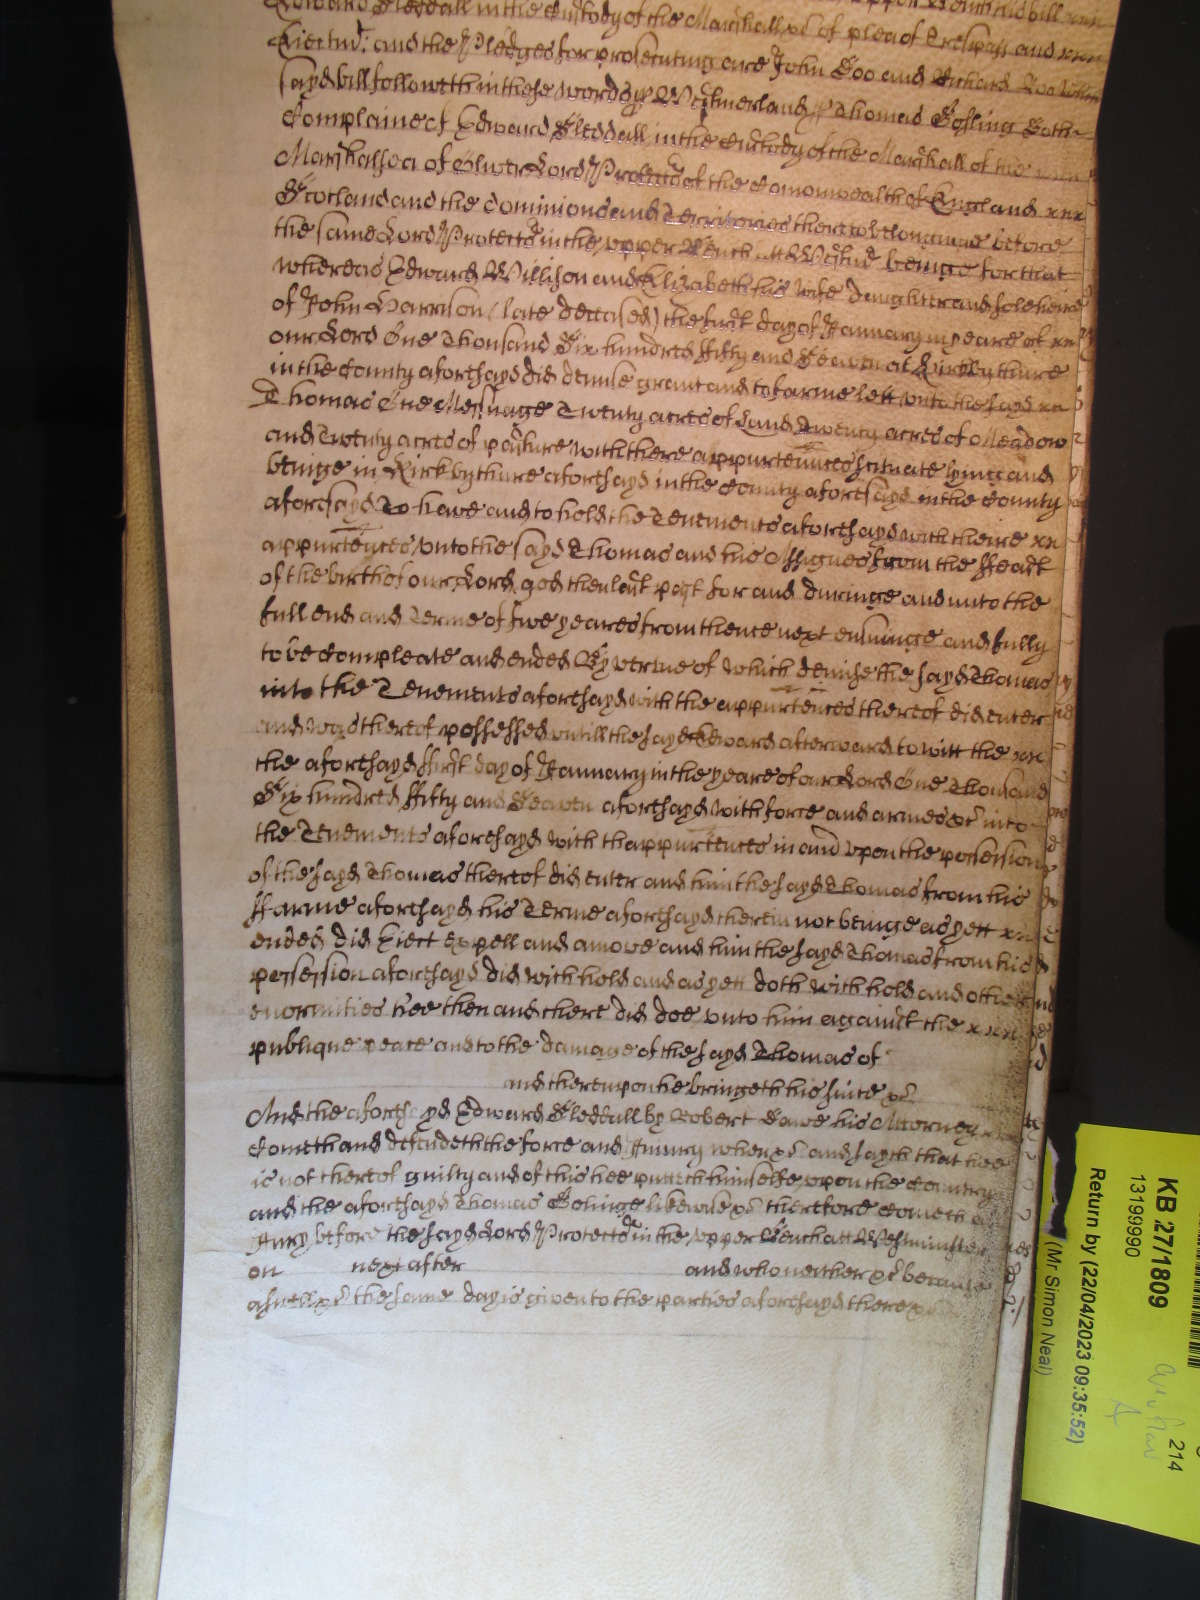 Edward Fleddall in the Custody of the Marshall &c of plea of Trespass and
Eiectmt: and the Pledges for prosecuting are John Doo and Richard Roo which
sayd bill followeth in these words Westmerland Thomas Gosling Doth
Complaine of Edward Fleddall in the Custody of the Marshall of the
Marshalsea of Oliver Lord Protector of the Comonwealth of England
Scotland and the Dominions and Territories thereto belonginge before
the same Lord Protector in the upper Bench att Westmr beinge for that
whereas Edward Willison and Elizabeth his wife daughter and sole heire
of John Harrison (late deceased) the first day of January in yeare of
our Lord One Thousand Six hundred ffifty and Seaven at Kirkbythure
in the County aforesayd did demise grant and to farme lett unto the sayd
Thomas One Messuage Twenty acres of Land Twenty acres of Meadow
and Twenty acres of pasture with there appurtenncs situate lying and
beinge in Kirkbythure aforesayd in the County aforesayd in the County
aforesayd To have and to hold the Tenements aforesayd with theire
appurtennces unto the sayd Thomas and his Assignes from the ffeast
of the birth of our Lord god then last past for and duringe and unto the
full end and Terme of five yeares from thence next ensuinge and fully
to be Compleate and ended By vertue of which demise the sayd Thomas
into the Tenements aforesayd with the appurtennces thereof did enter
and was thereof possessed untill the sayd Edward afterward to witt the
the aforesayd ffirst day of January in the yeare of our Lord One Thousand
Six hundred ffifty and Seaven aforesayd with force and armes &c into
the Tenements aforesayd with thappurtennces in and upon the possession
of the sayd Thomas thereof did enter and him the sayd Thomas from his
ffarme aforesayd his Terme aforesayd therein not beinge as yett
ended did Eiect expell and amove and him the sayd Thomas from his
possession aforesayd did with hold and as yett doth with hold and other
enormities hee then and there did doe unto him against the
publique peace and to the damage of the sayd Thomas of
and thereupon he bringeth his suite &c
And the aforesayd Edward Fleddall by Robert his Attorney
Cometh and defendeth the force and Iniury when &c and sayth that hee
is not thereof guilty and of this hee putteth himselfe upon the Country
and the aforesayd Thomas Goslinge likewise &c therefore Cometh a
Jury before the sayd Lord Protector in the upper Bench att Westminster
on next after and who neither &c because
aswell &c the same day is given to the parties aforesayd there &c
KB 27/1809
13199990
214
Return by (22/04/2023 09:35:52)
(Mr Simon Neal)